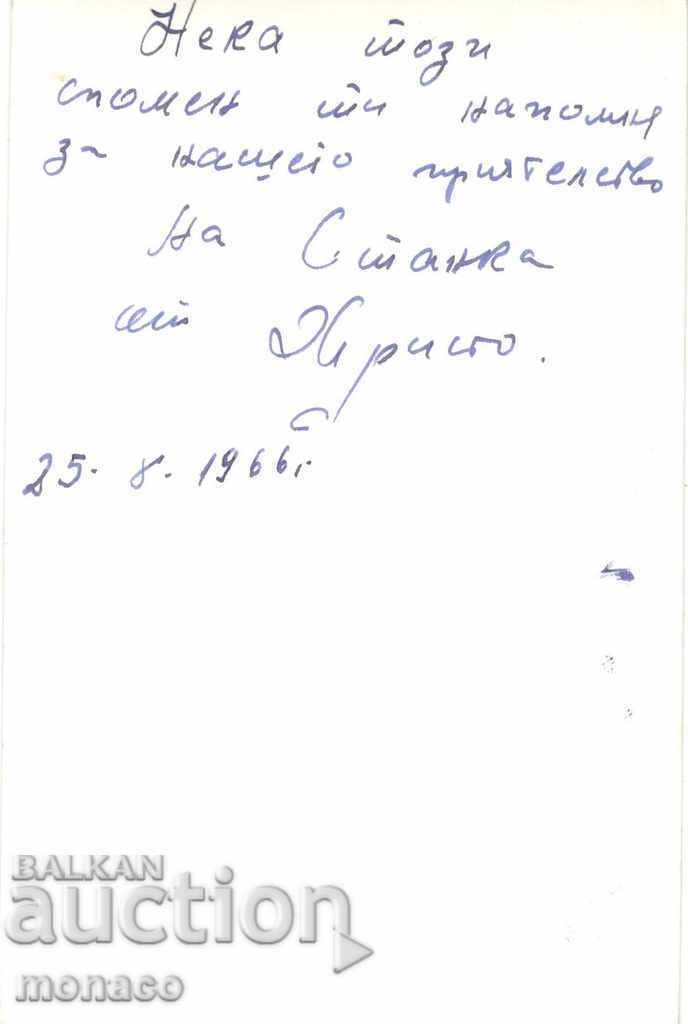 Нека този
спомен ти напомня
за нашето приятелство
На Станка
от Христо.
25. 8. 1966 г.
BALKAN
auction
monaco